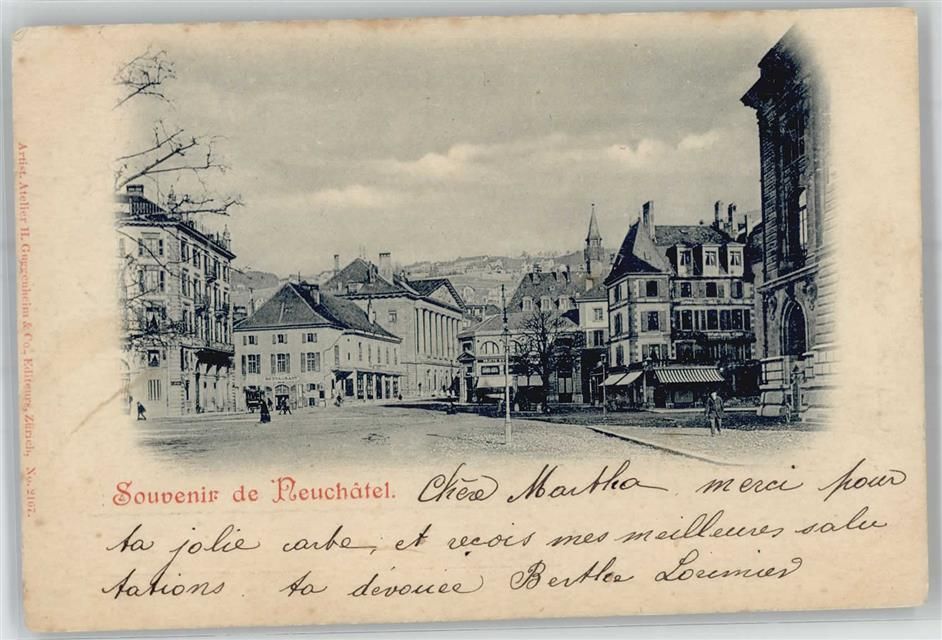 Artist. Atelier H. Guggenheim & Co., Editeurs, Zürich. No. 2107.
RESTAURANT
Souvenir de Neuchâtel. Chère Martha merci pour
ta jolie carte, et reçois mes meilleures salu
tations. ta dévouée Berthe Lorimier